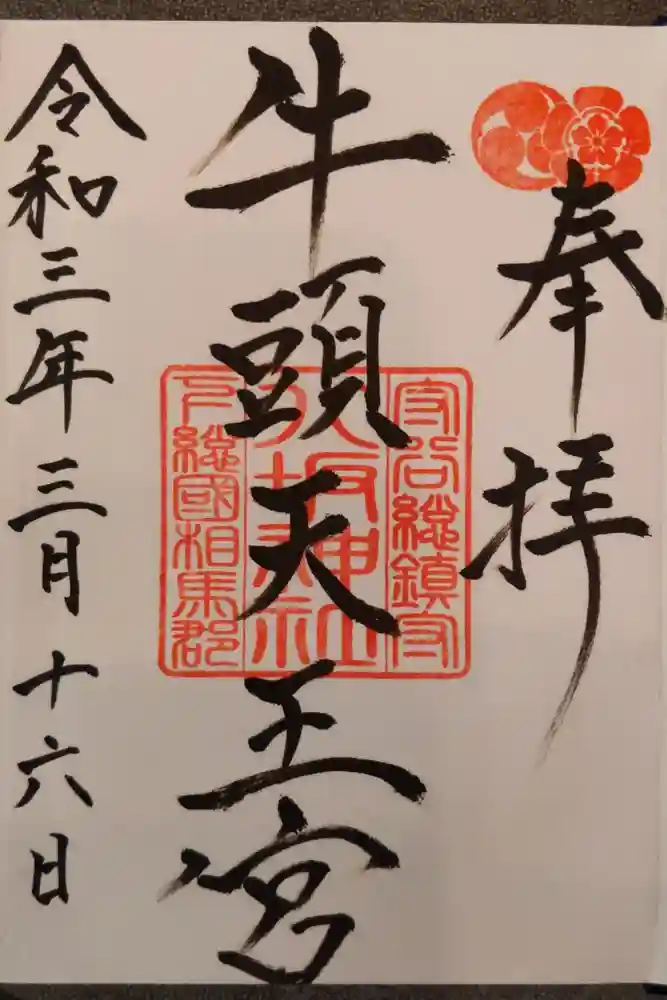 奉拝
牛頭天王宮
令和三年三月十六日
守谷総鎮守
八坂神社
下総國相馬郡